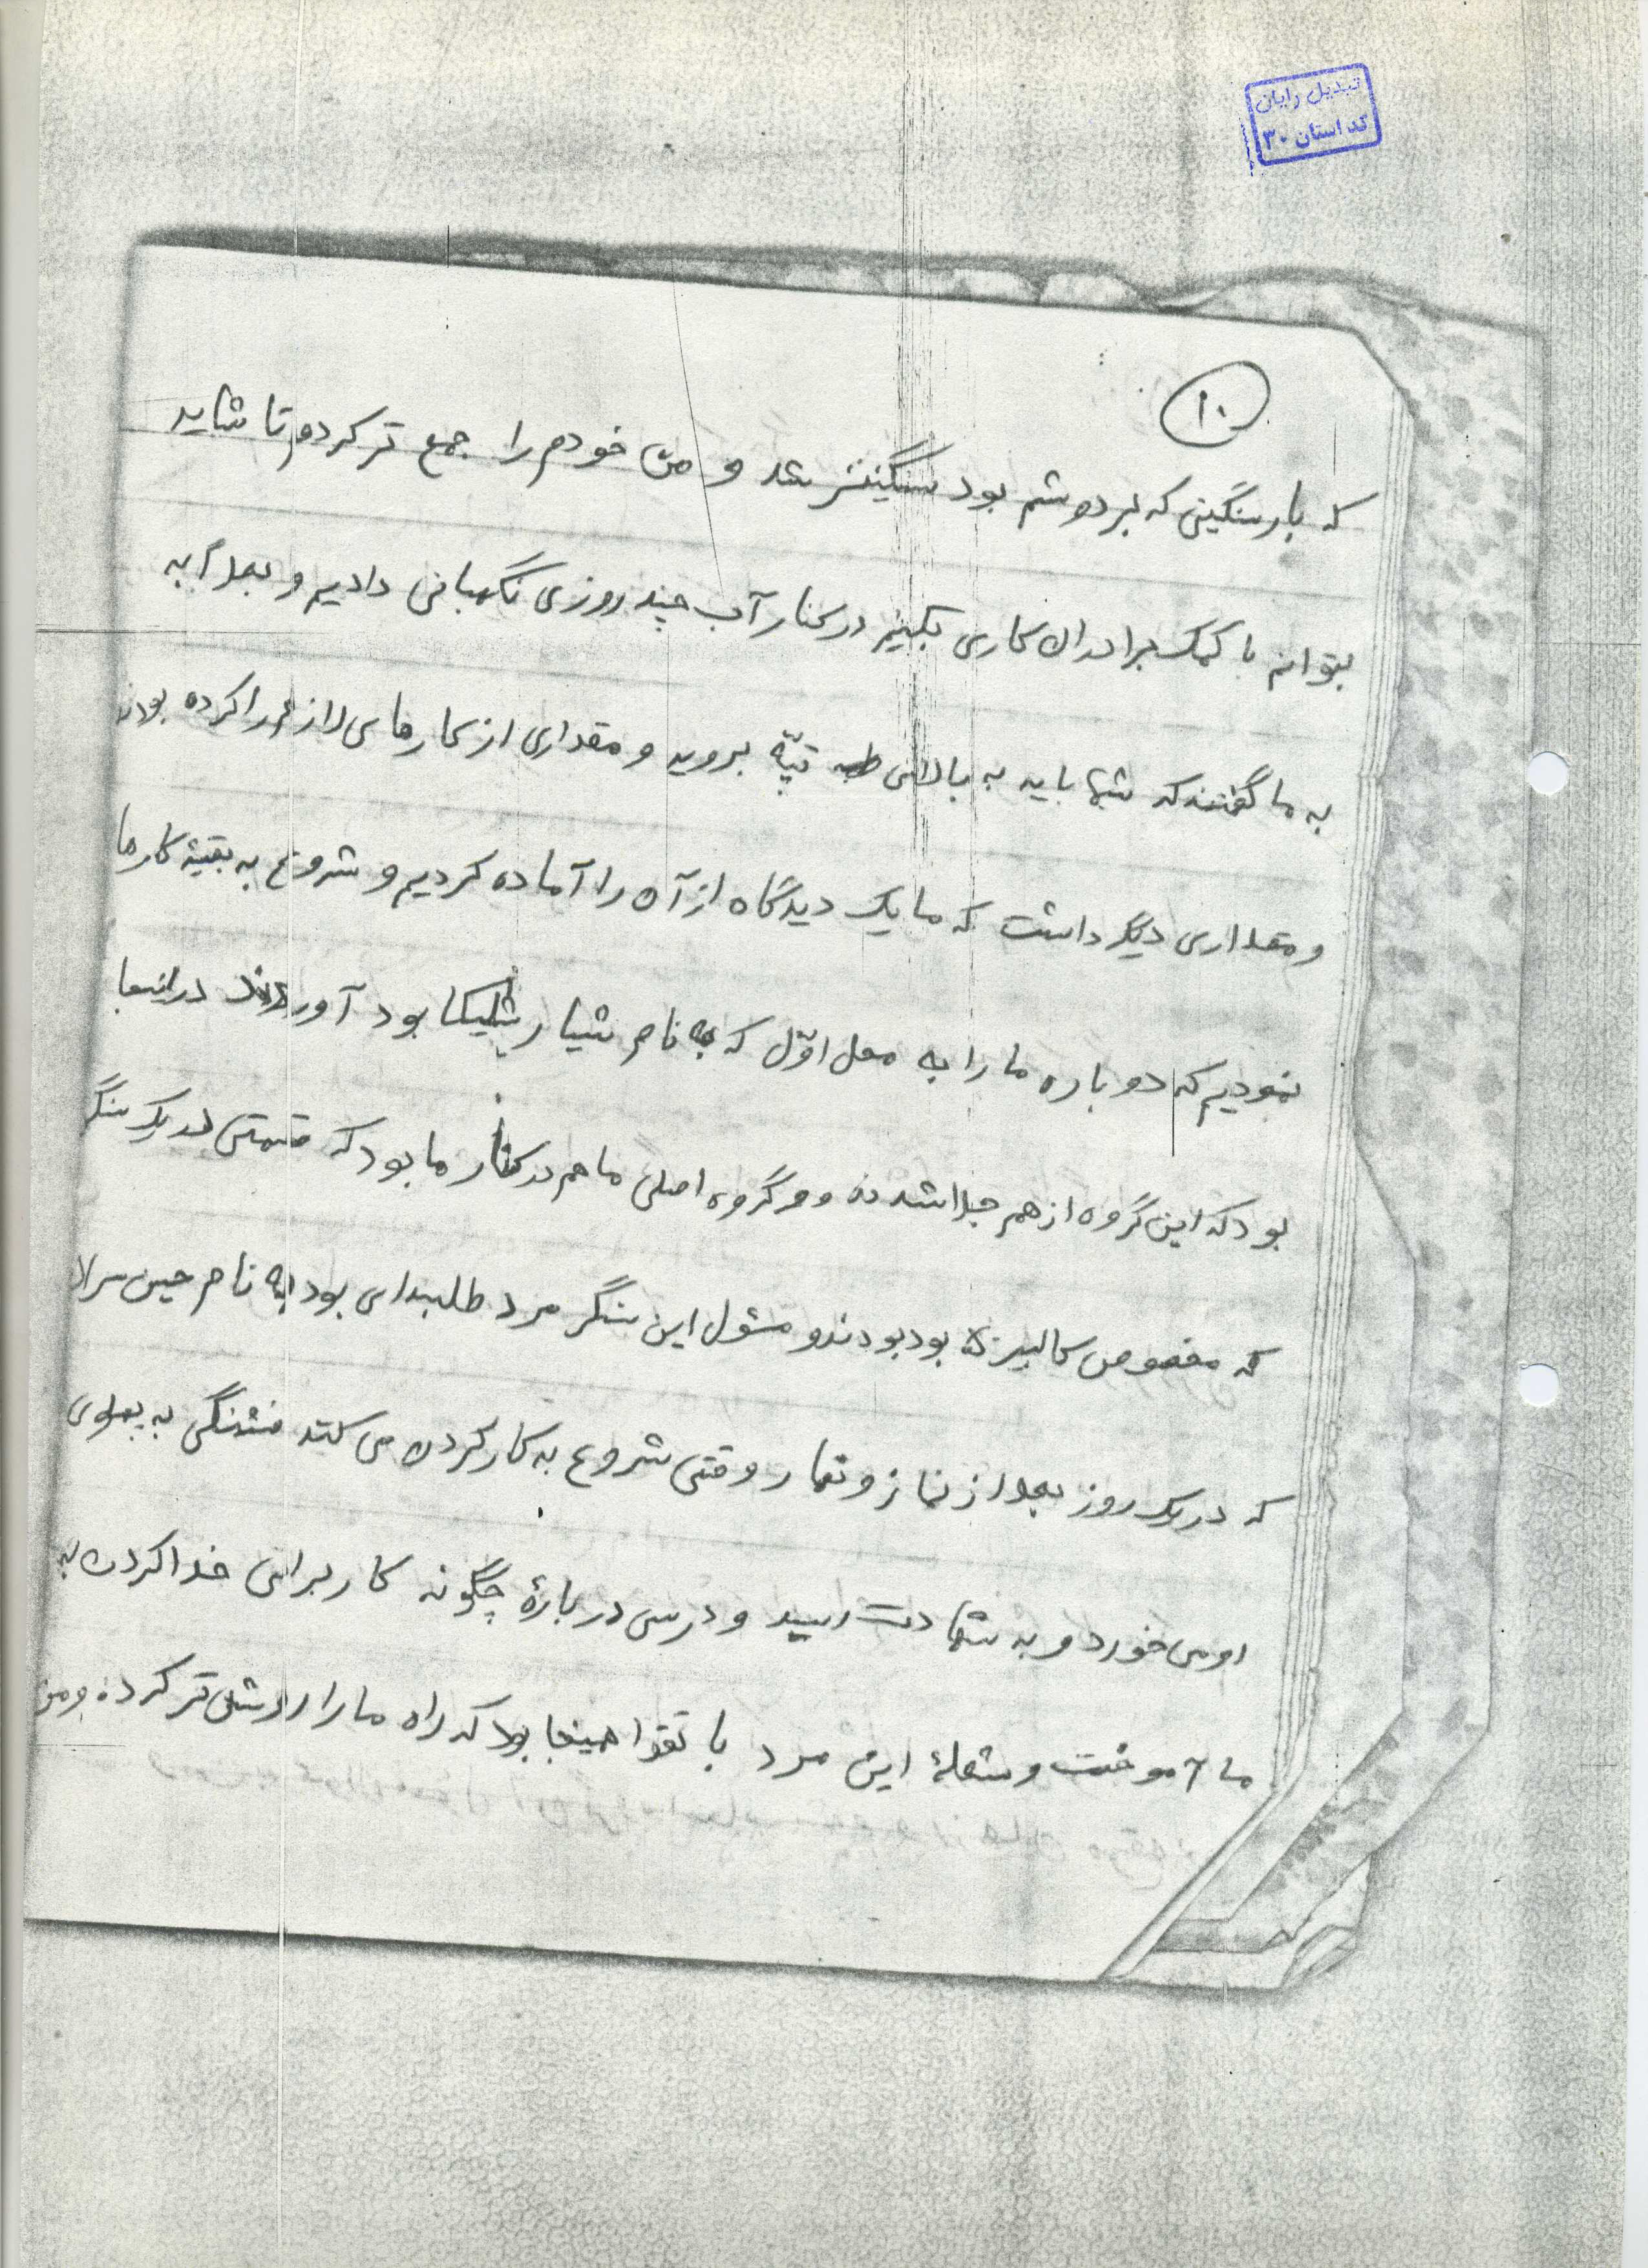 تبدیل رایان
کد استان ۳۰
۱۰
که بار سنگینی که بر دوشم بود سنگینتر شد و من خودم را جمع تر کردم تا شاید
بتوانم با کمک برادران کاری بکنیم در کنار آب چند روزی نگهبانی دادیم و بعداً به
به ما گفتند که شبها باید به بالای تپّه بروید و مقداری از کارهای را کرده بودند
و مقداری دیگر داشت که ما یک دیدگاه از آن را آماده کردیم و شروع به بقیۀ کارها
نمودیم که دوباره ما را به محل اوّل که به نام شیار شلیکا بود آوردند در اینجا
بود که این گروه از هم جدا شدند و گروه اصلی ما هم در کنار ما بود که قسمتی در یک سنگر
که مخصوص کالیبر بود بودند و مسئول این سنگر مرد طلبه‌ای بود به نام
که در یک روز بعد از نماز و وقتی شروع به کار کردن می کند فشنگی به پهلوی
او می خورد و به شهادت رسید و درسی دربارۀ چگونه کار برای خدا کردن به
ما آموخت و شعلۀ این مرد با تقوا همینجا بود که راه ما را روشن تر کرده و من